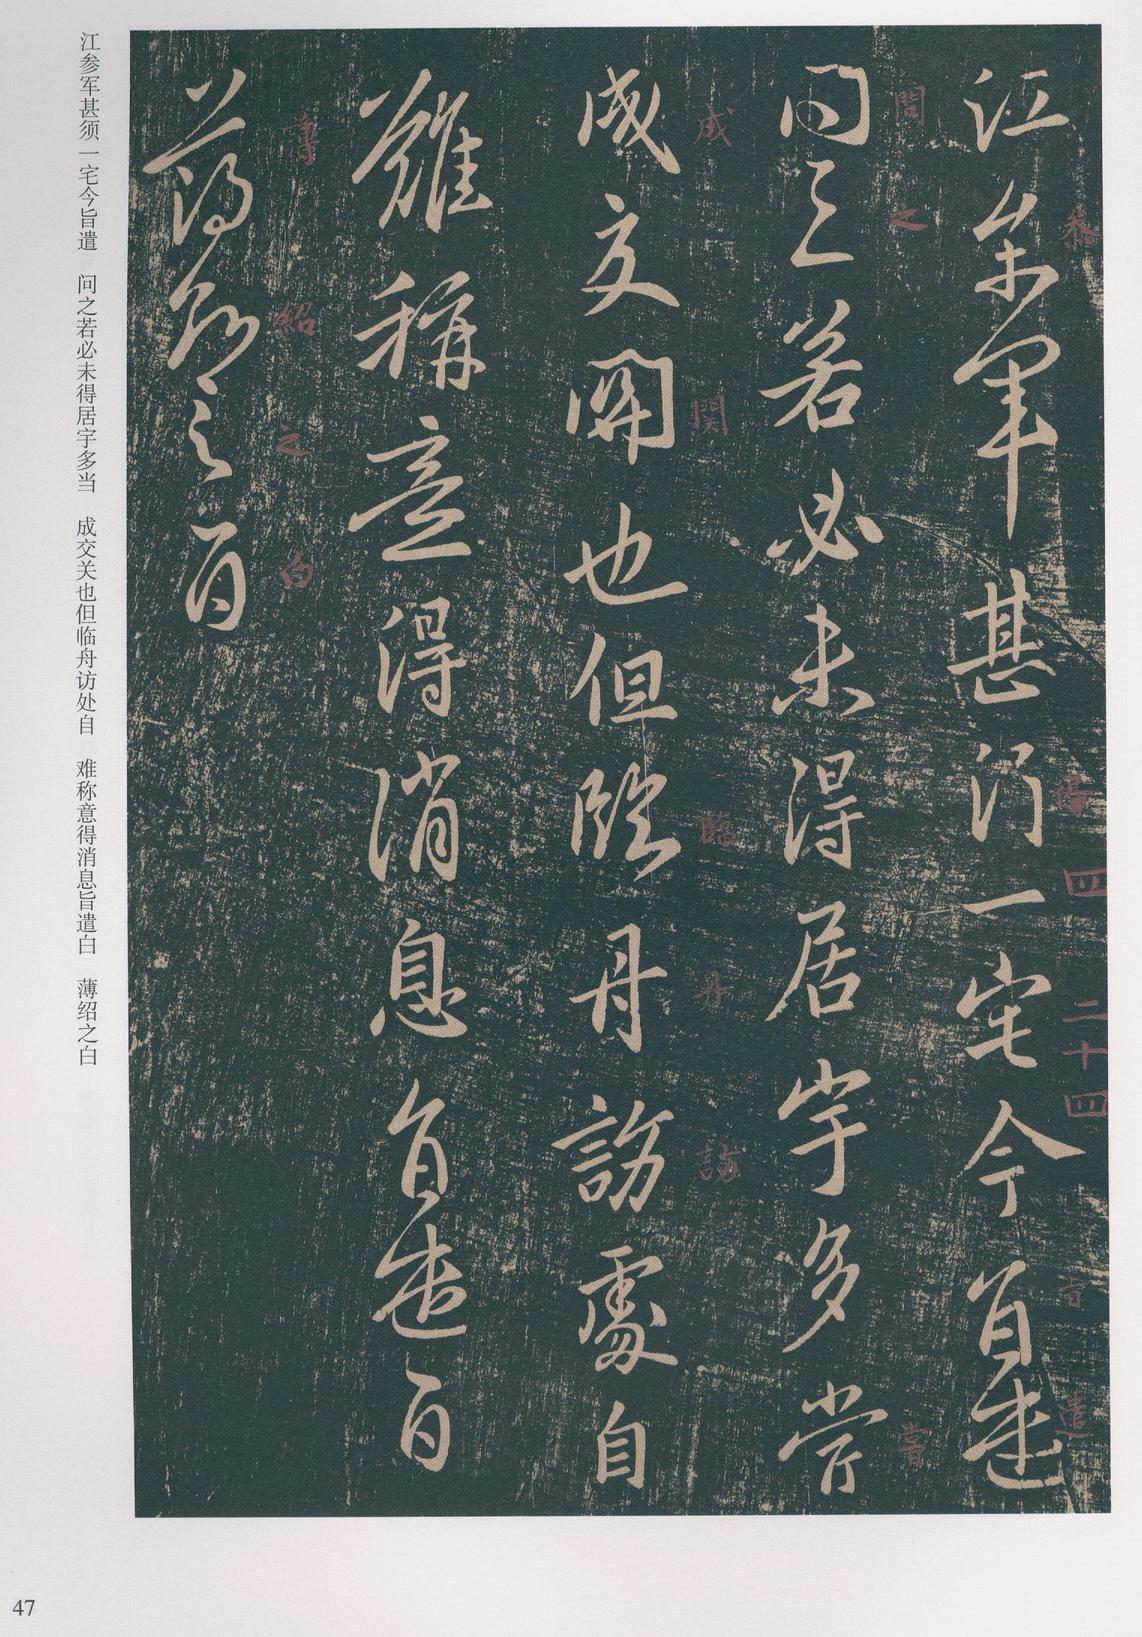 江參軍甚須一宅今旨遣
問之若必未得居宇多當
成交關也但臨舟訪處自
難稱意得消息旨遣白
薄紹之白
參
須
四
二十四
旨
遣
問
之
當
成
關
臨
舟
訪
薄
紹
之
白
江参军甚须一宅今旨遣 问之若必未得居宇多当 成交关也但临舟访处自 难称意得消息旨遣白 薄绍之白
47